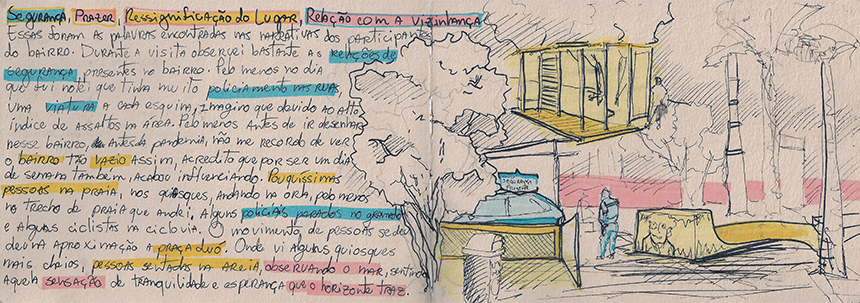 Segurança, Prazer, Ressignificação do Lugar, Relação com a Vizinhança
Essas foram as palavras encontradas nas narrativas dos participantes
do bairro. Durante a visita observei bastante as relações de
segurança, presentes no bairro. Pelo menos no dia
que fui notei que tinha muito policiamento nas ruas,
uma viatura a cada esquina, imagino que devido ao alto
índice de assaltos na área. Pelo menos antes de ir desenhar
nesse bairro, antes da pandemia, não me recordo de ver
o bairro tão vazio assim, acredito que por ser um dia
de semana também, acabou influenciando. Pouquíssimas
pessoas na praia, nos quiosques, andando na orla, pelo menos
no trecho de praia que andei, alguns policiais parados no gramado
e alguns ciclistas na ciclovia. O movimento de pessoas se deu
devido a aproximação a praça duó. Onde vi alguns quiosques
mais cheios, pessoas sentadas na areia, observando o mar, sentindo
aquela sensação de tranquilidade e esperança que o horizonte traz.
Segurança